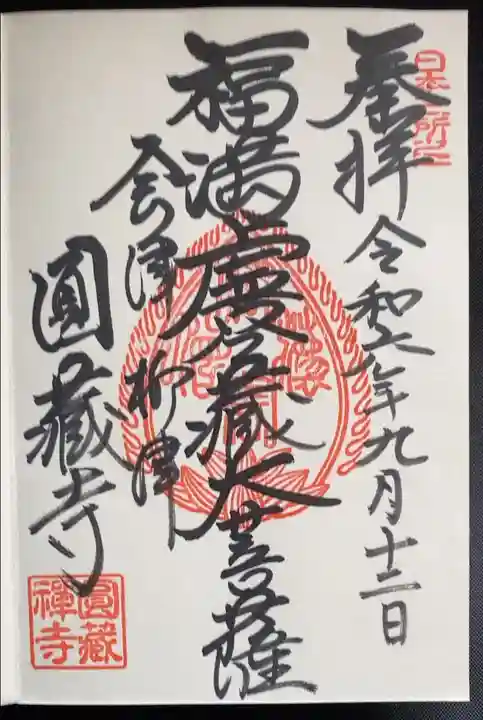 奉拝 令和六年九月十三日
福満虚空蔵大菩薩
会津 柳津
圓蔵寺
圓藏
禅寺